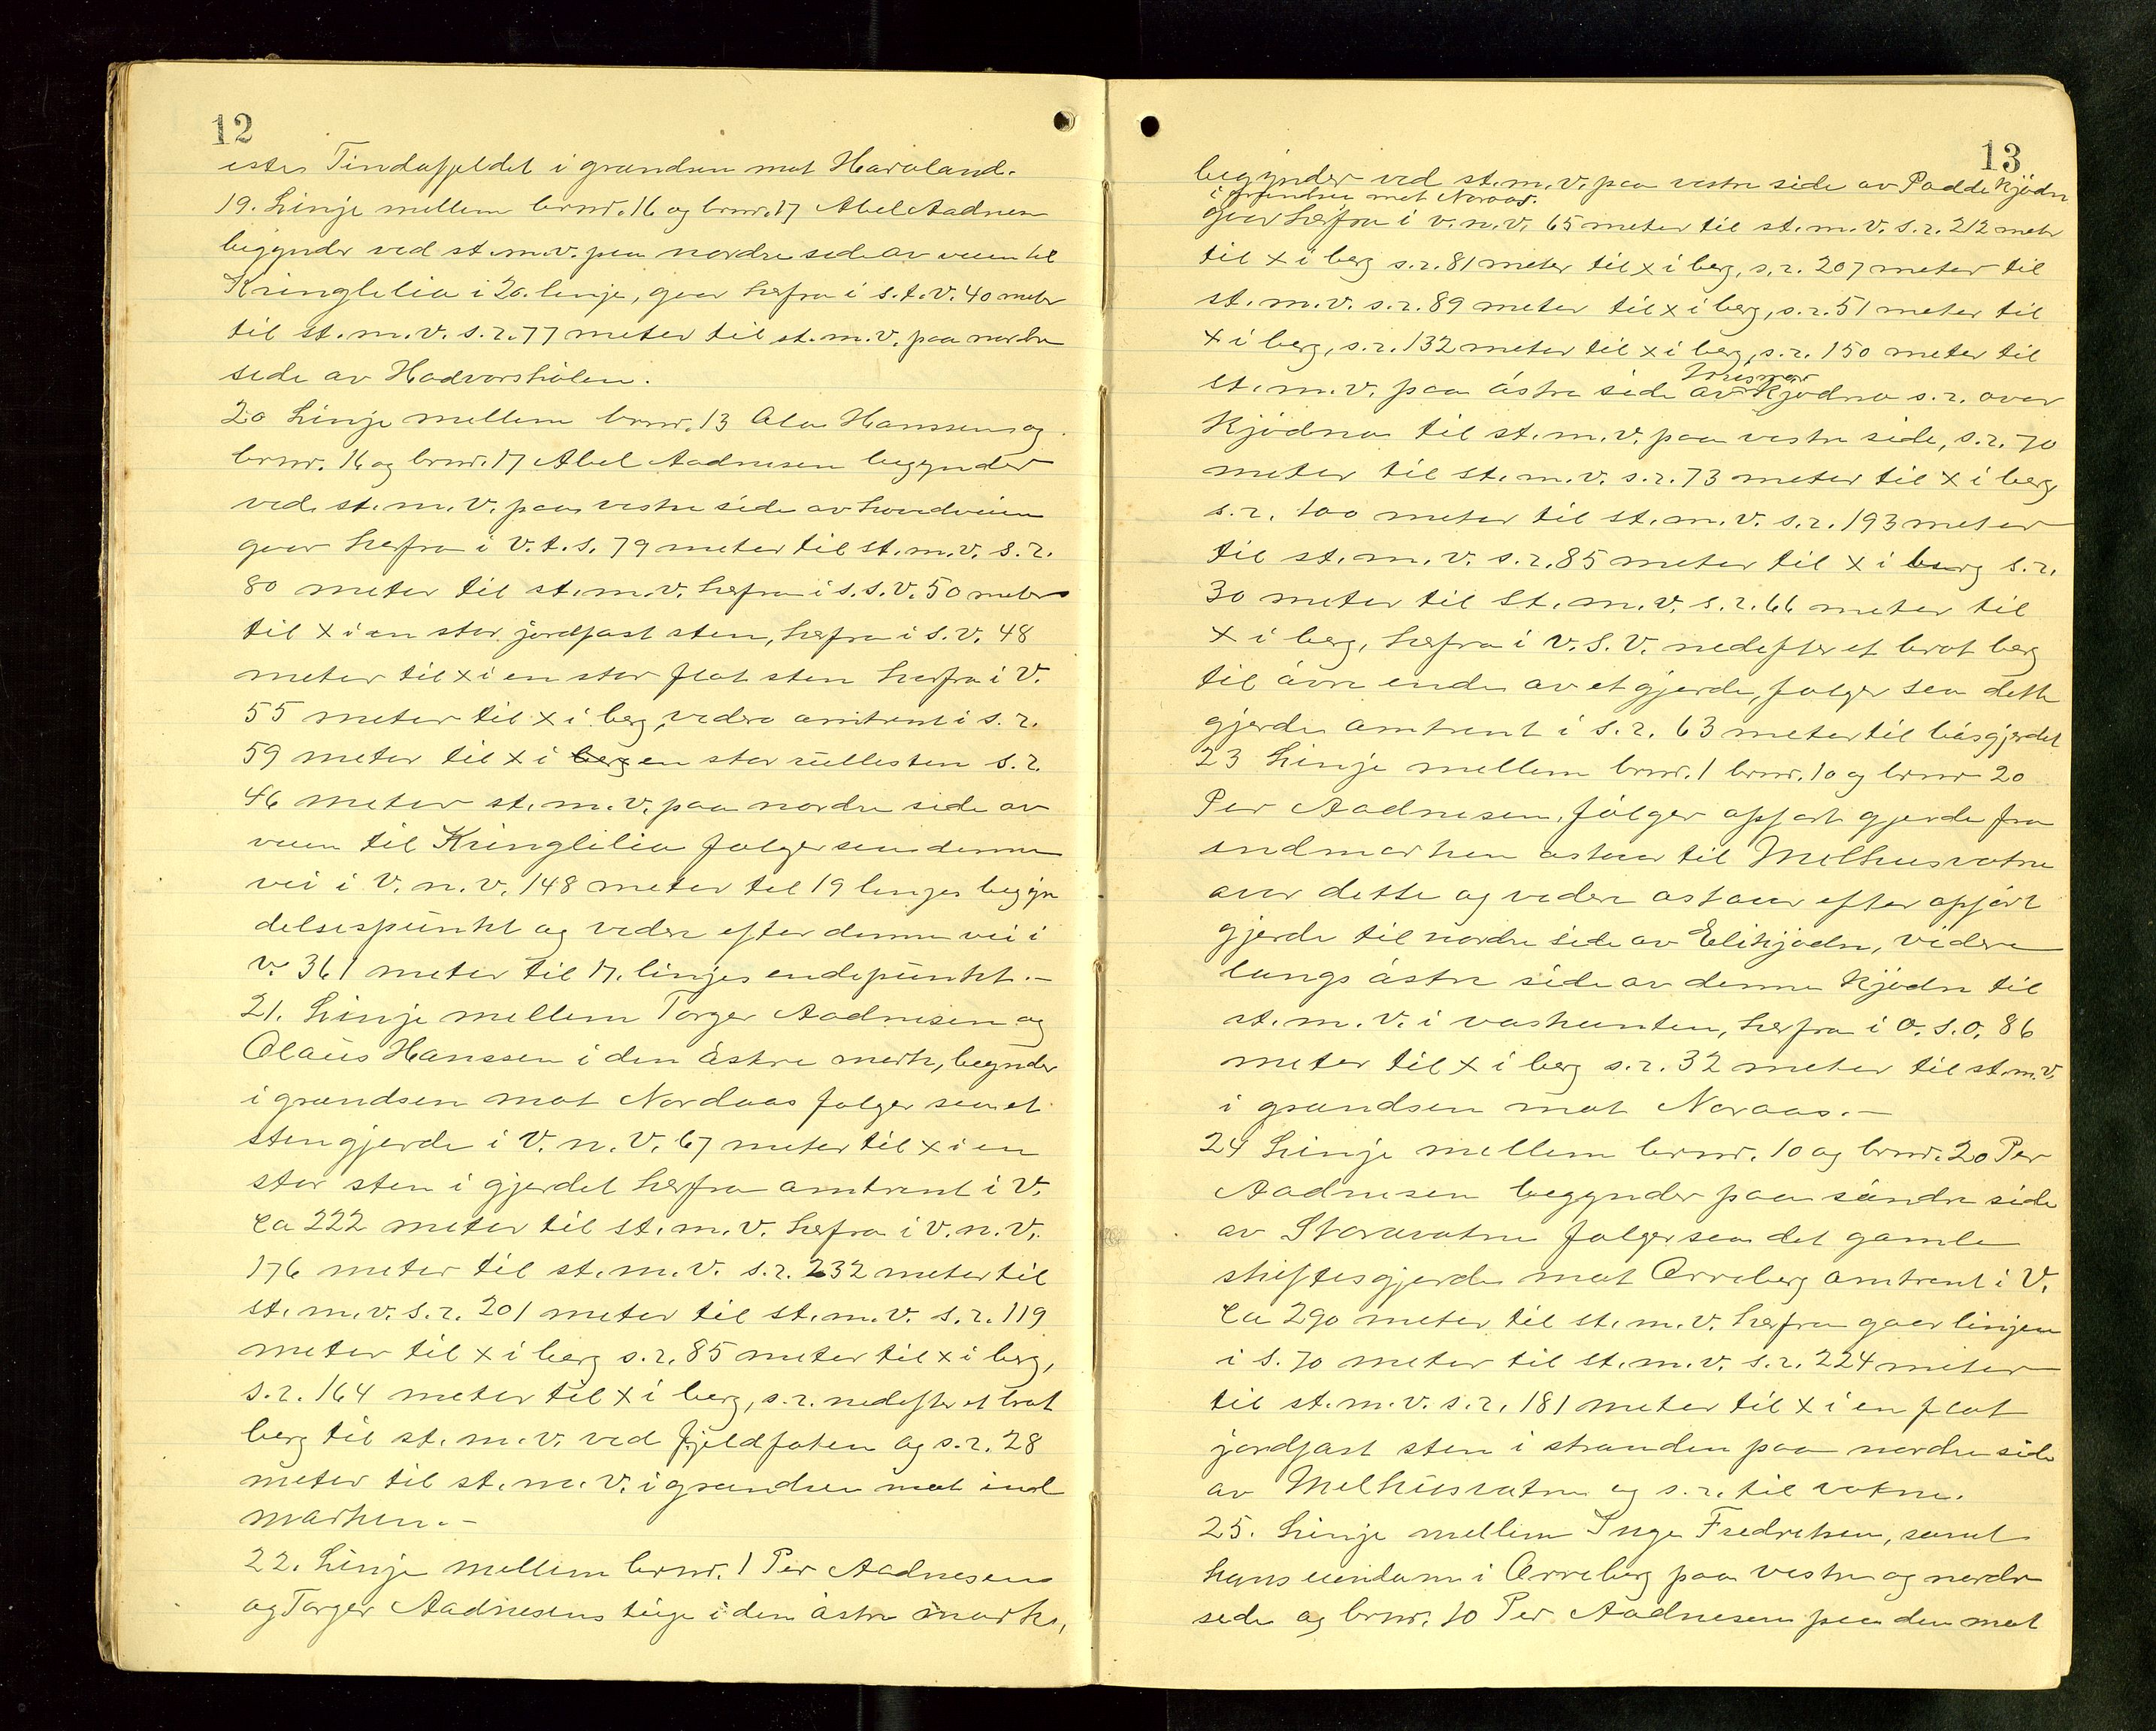 12
estes Tindafjeldet i grændsen mot Havaland.
19. Linje mellem brnr. 16 og brnr. 17 Abel Aadnesen
begynder ved st.m.v. paa nordre side av veien til
Kringlelia i 20. linje, gaar herfra i s.t.v. 40 meter
til st.m.v. s.r. 77 meter til st.m.v. paa nordre
side av Hadvarshölen.
20 Linje mellem brnr. 13 Ola Hanssen og
brnr. 16 og brnr. 17 Abel Aadnesen begynder
ved st.m.v. paa vestre side av hovedveien
gaar herfra i V.t.S. 79 meter til st.m.v. s.r.
80 meter til st.m.v. herfra i s.s.v. 50 meter
til x i en stor jordfast sten, herfra i s.v. 48
meter til x i en stor flat sten herfra i V.
55 meter til x i berg, videre omtrent i s.r.
59 meter til x i berg en stor rullesten s.r.
46 meter st.m.v. paa nordre side av
veien til Kringlilia følger saa denne
vei i V.n.v. 148 meter til 19 linjes begyn
delsespunkt og videre efter denne vei i
v. 361 meter til 17. linjes endepunkt.-
21. Linje mellem Torger Aadnesen og
Olaus Hanssen i den østre mark, begynder
i grændsen mot Nordaas følger saa et
stengjerde i V.n.V. 67 meter til x i en
stor sten i gjerdet herfra omtrent i V.
ca 222 meter til st.m.v. herfra i v.n.v.
176 meter til st.m.v. s.r. 232 meter til
st.m.v. s.r. 201 meter til st.m.v. s.r. 119
meter til x i berg s.r. 85 meter til x i berg,
s.r. 164 meter til x i berg, s.r. nedefter et brat
berg til st.m.v. ved fjeldfoten og s.r. 28
meter til st.m.v. i grændsen mot ind
marken.-
22. Linje mellem brnr. 1 Per Aadnesens
og Torger Aadnesens teige i den østre mark,
13
begynder ved st.m.v. paa vestre side av Paddekjødn
i grændsen mot Noraas.
gaar herfra i v.n.v. 65 meter til st.m.v. s.r. 212 meter
til x i berg s.r. 81 meter til x i berg, s.r. 207 meter til
st.m.v. s.r. 89 meter til x i berg, s.r. 51 meter til
x i berg, s.r. 132 meter til x i berg, s.r. 150 meter til
st.m.v. paa østre side av Kjødna s.r. over
Kjødna til st.m.v. paa vestre side, s.r. 70
meter til st.m.v. s.r. 73 meter til x i berg
s.r. 100 meter til st.m.v. s.r. 193 meter
til st.m.v. s.r. 85 meter til x i berg s.r.
30 meter til st.m.v. s.r. 66 meter til
x i berg, herfra i V.S.V. nedefter et brat berg
til øvre ende av et gjerde, følger saa dette
gjerde omtrent i s.r. 63 meter til bøsgjerdet
23 Linje mellem brnr. 1 brnr. 10 og brnr 20
Per Aadnesen, følger opført gjerde fra
indmarken østover til Melhusvatne
over dette og videre østover efter opført
gjerde til nordre side av Elikjødn, videre
langs østre side av denne Kjødn til
st.m.v. i vaskanten, herfra i O.S.O. 86
meter til x i berg s.r. 32 meter til st.m.v.
i grændsen mot Noraas.-
24 Linje mellem brnr. 10 og brnr. 20 Per
Aadnesen begynder paa søndre side
av Storavatne følger saa det gamle
skiftesgjerde mot Orreberg omtrent i V.
ca 290 meter til st.m.v. herfra gaar linjen
i S. 70 meter til st.m.v. s.r. 224 meter
til st.m.v. s.r. 181 meter til x i en flat
jordfast sten i stranden paa nordre side
av Melhusvatne og s.r. til vatne.
25. Linje mellem Inge Fredriksen, samt
hans eiendom i Orreberg paa vestre og nordre
side og brnr. 10 Per Aadnesen paa den mot